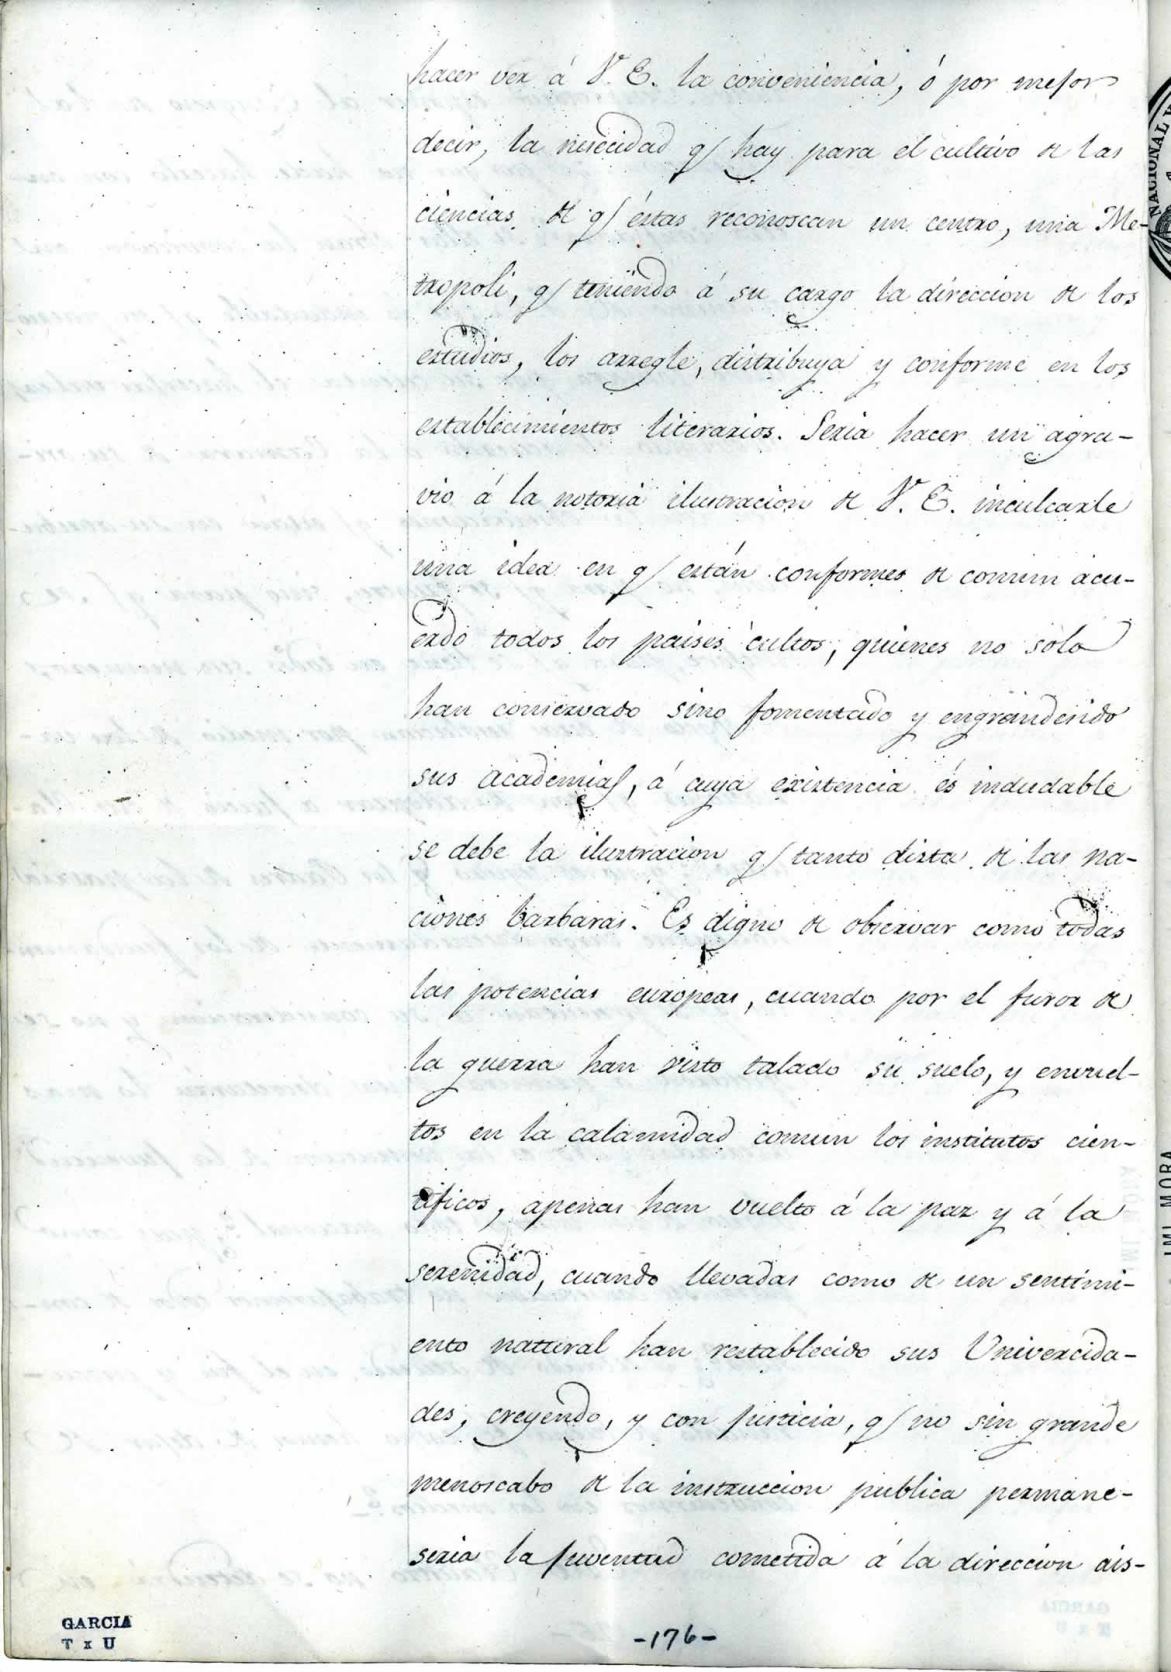 hacer ver á V. E. la conveniencia, ó por mejor
decir, la nesecidad q/ hay para el cultivo de las
ciencias de q/ éstas reconoscan un centro, una Me-
tropoli, q/ teniendo á su cargo la direccion de los
estudios, los arregle, distribuya y conforme en los
establecimientos literarios. Seria hacer un agra-
vio á la notoria ilustracion de V. E. inculcarle
una idea en q/ están conformes de comun acu-
erdo todos los paises cultos, quienes no solo
han conservado sino fomentado y engrandesido
sus academias, á cuya existencia és indudable
se debe la ilustracion q/ tanto dista de las na-
ciones barbaras. Es digno de observar como todas
las potencias europeas, cuando por el furor de
la guerra han visto talado su suelo, y envuel-
tos en la calamidad comun los institutos cien-
tificos, apenas han vuelto á la paz y á la
serenidad, cuando llevadas como de un sentimi-
ento natural han restablecido sus Univercida-
des, creyendo, y con justicia, q/ no sin grande
menoscabo de la instruccion publica permane-
seria la juventud cometida á la direccion ais-
NACIONAL
IMI MORA
GARCIA
T x U
-176-